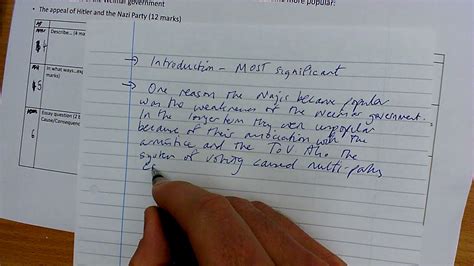 the Weimar government
more popular:
• The appeal of Hitler and the Nazi Party (12 marks)
Describe... (4 ma
4
In what ways...exp
marks)
5
Essay question (2 b
Cause/Consequenc
6
→ Introduction - MOST significant
→ One reason the Nazis became popular
was the weaknesses of the Weimar government.
In the longer term they were unpopular
because of their association with the
armistice and the ToV. Also the
system of voting caused multi-party